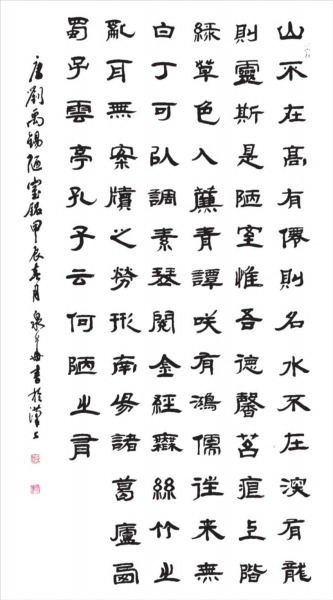 山不在髙有僊則名水不在深有龍
則靈斯是陋室惟吾德馨苔痕上階
緑草色入簾青譚咲有鴻儒往來無
白丁可以調素琴閱金經無絲竹之
亂耳無案牘之勞形南陽諸葛廬西
蜀子雲亭孔子云何陋之有
唐劉禹錫陋室銘甲辰春月泉書於漢上